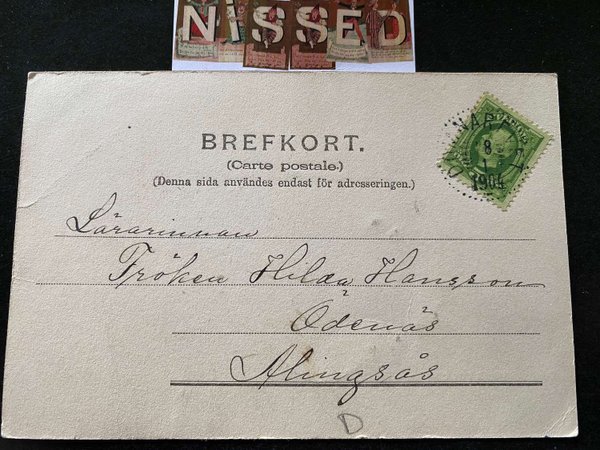 NiSSED
BREFKORT.
(Carte postale.)
(Denna sida användes endast för adresseringen.)
8
1
1904
Lärarinnan
Fröken Hilda Hansson
Ödenäs
Alingsås
D